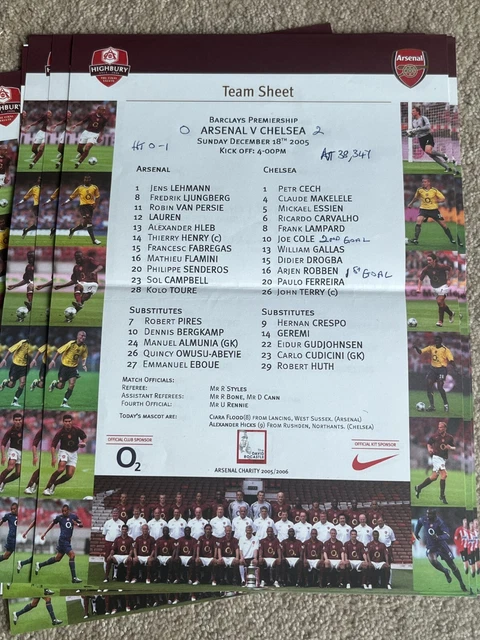 HIGHBURY
Arsenal
Team Sheet
BARCLAYS PREMIERSHIP
0 ARSENAL V CHELSEA 2
SUNDAY DECEMBER 18TH 2005
HT 0-1
KICK OFF: 4-00PM
ATT 38,347
ARSENAL
1 JENS LEHMANN
8 FREDRIK LJUNGBERG
11 ROBIN VAN PERSIE
12 LAUREN
13 ALEXANDER HLEB
14 THIERRY HENRY (C)
15 FRANCESC FABREGAS
16 MATHIEU FLAMINI
20 PHILIPPE SENDEROS
23 SOL CAMPBELL
28 KOLO TOURE
SUBSTITUTES
7 ROBERT PIRES
10 DENNIS BERGKAMP
24 MANUEL ALMUNIA (GK)
26 QUINCY OWUSU-ABEYIE
27 EMMANUEL EBOUE
CHELSEA
1 PETR CECH
4 CLAUDE MAKELELE
5 MICKAEL ESSIEN
6 RICARDO CARVALHO
8 FRANK LAMPARD
10 JOE COLE 2ND GOAL
13 WILLIAM GALLAS
15 DIDIER DROGBA
16 ARJEN ROBBEN 1ST GOAL
20 PAULO FERREIRA
26 JOHN TERRY (C)
SUBSTITUTES
9 HERNAN CRESPO
14 GEREMI
22 EIDUR GUDJOHNSEN
23 CARLO CUDICINI (GK)
29 ROBERT HUTH
MATCH OFFICIALS:
REFEREE: MR R STYLES
ASSISTANT REFEREES: MR R BONE, MR D CANN
FOURTH OFFICIAL: MR U RENNIE
TODAY'S MASCOT ARE: CIARA FLOOD(8) FROM LANCING, WEST SUSSEX. (ARSENAL)
ALEXANDER HICKS (9) FROM RUSHDEN, NORTHANTS. (CHELSEA)
OFFICIAL CLUB SPONSOR
O2
DAVID
ROCASTLE
ARSENAL CHARITY 2005/2006
OFFICIAL KIT SPONSOR